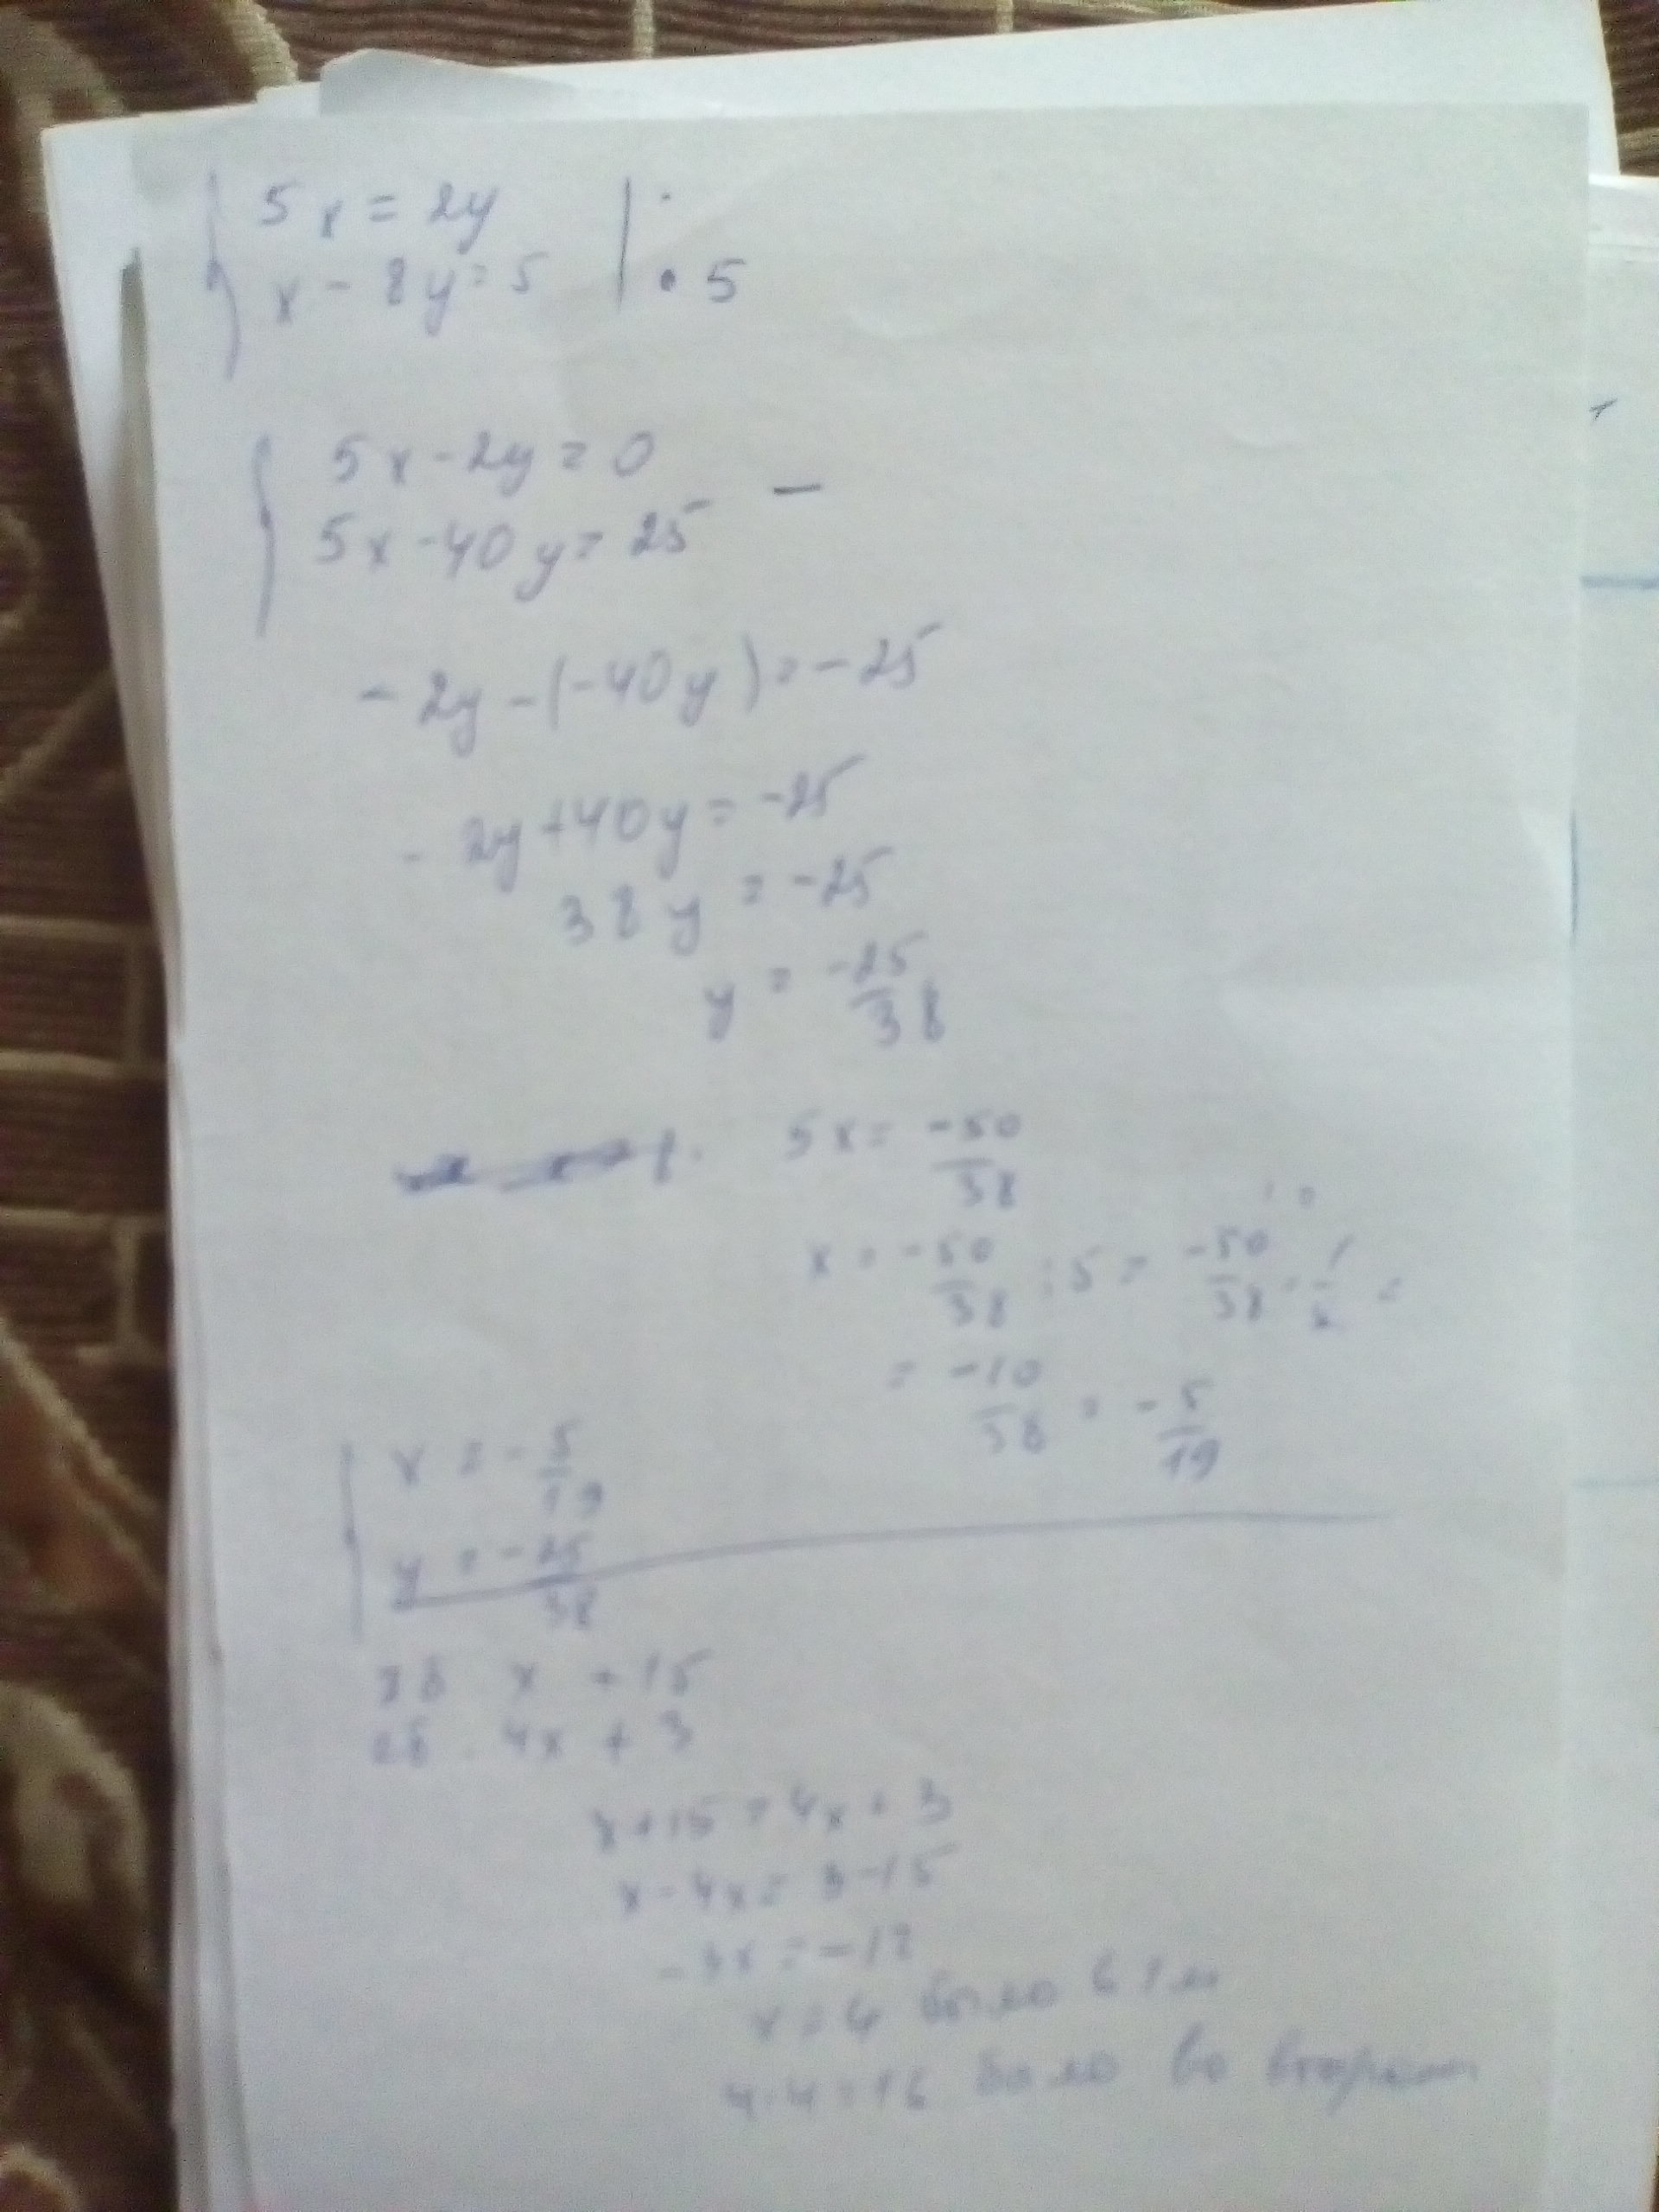 5x = 2y
x - 8y = 5 | · 5
5x - 2y = 0
5x - 40y = 25 —
- 2y - (-40y) = - 25
- 2y + 40y = -25
38y = -25
y = -25/38
5x = -50/38
x = -50/38 : 5 = -50/38 · 1/5 =
= -10/38 = - 5/19
x = - 5/19
y = - 25/38
x + 15
4x + 3
x + 15 = 4x + 3
x - 4x = 3 - 15
-3x = -12
x = 4 было в 1м
4·4 = 16 было во втором